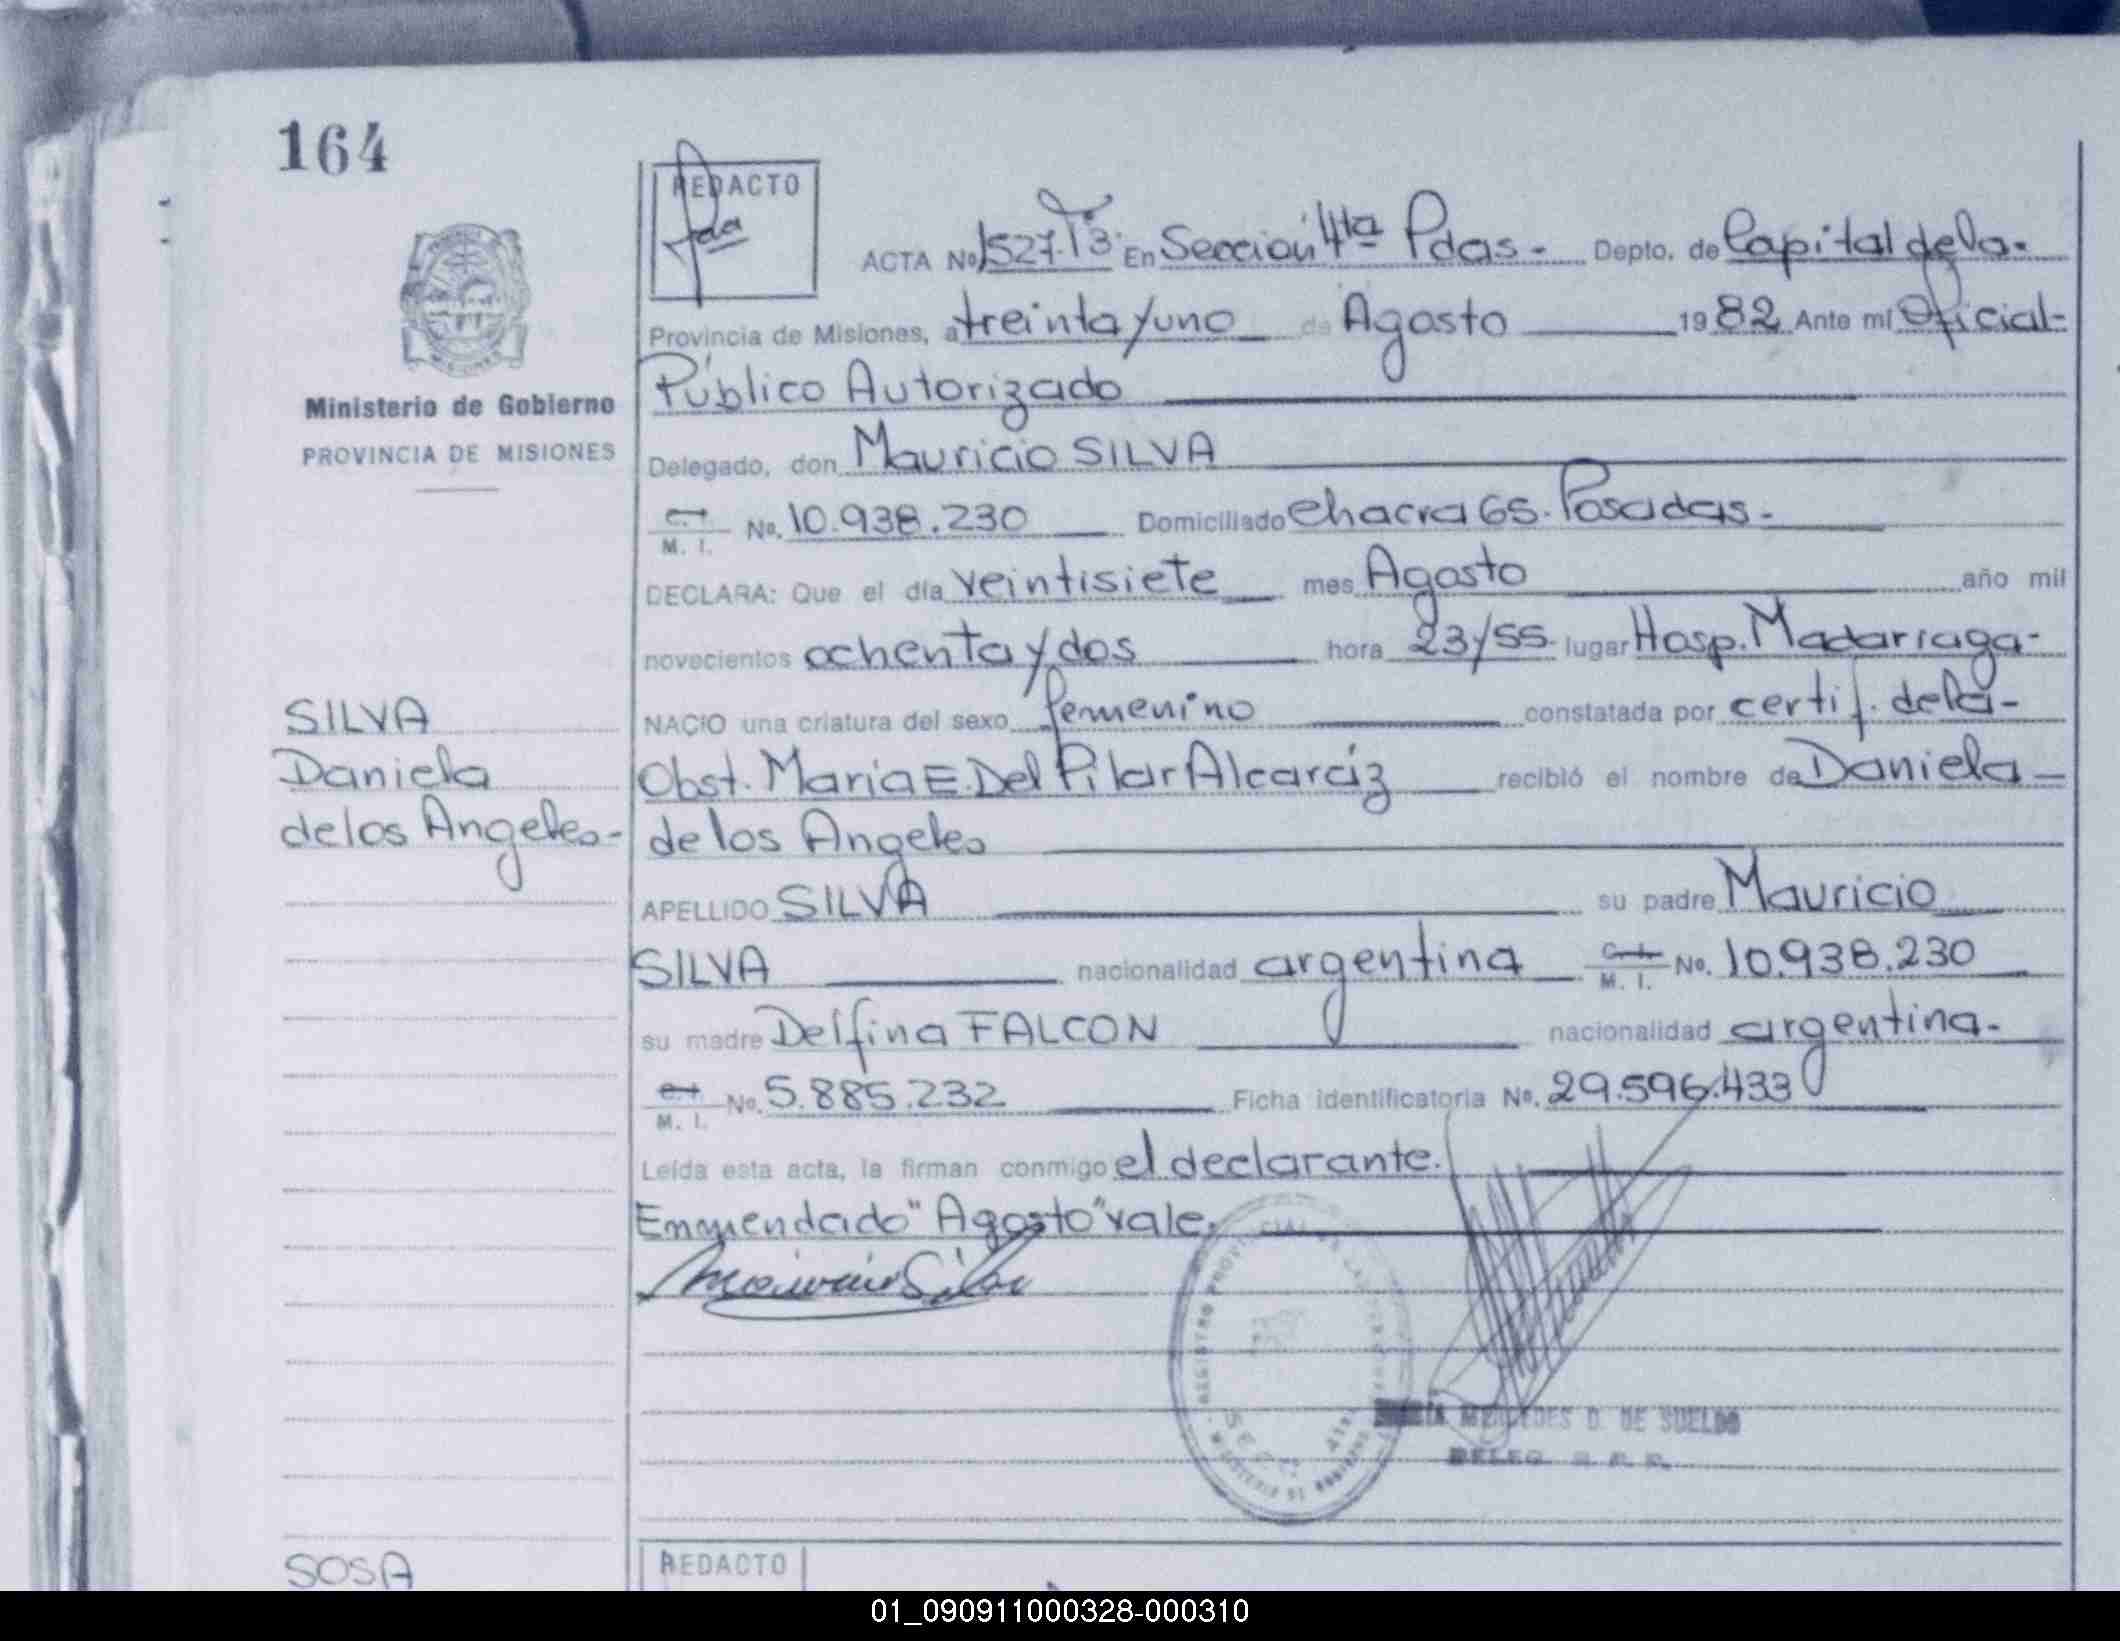 164
REDACTO
ACTA No 1527.Tº3. En Sección 4ta Pdas - Depto. de Capital de la -
Provincia de Misiones, a treinta y uno de Agosto 1982 Ante mí Oficial -
Público Autorizado
Ministerio de Gobierno
PROVINCIA DE MISIONES
Delegado, don Mauricio SILVA
C.I. M. I. No. 10.938.230 Domiciliado Chacra 65. Posadas -
DECLARA: Que el día veintisiete mes Agosto año mil
novecientos ochenta y dos hora 23/55 lugar Hosp. Madariaga -
SILVA
Daniela
de los Angeles -
NACIO una criatura del sexo femenino constatada por certif. de la -
Obst. Maria E. Del Pilar Alcaráz recibió el nombre de Daniela -
de los Angeles
APELLIDO SILVA su padre Mauricio
SILVA nacionalidad argentina C.I. M. I. No. 10.938.230
su madre Delfina FALCON nacionalidad argentina -
C.I. M. I. No. 5.885.232 Ficha identificatoria No. 29.596.433
Leída esta acta, la firman conmigo el declarante.
Enmendado "Agosto" vale.
Mauricio Silva
MERCEDES D. DE SUELDO
DELEG. R. P. P.
SOSA
REDACTO
01_090911000328-000310